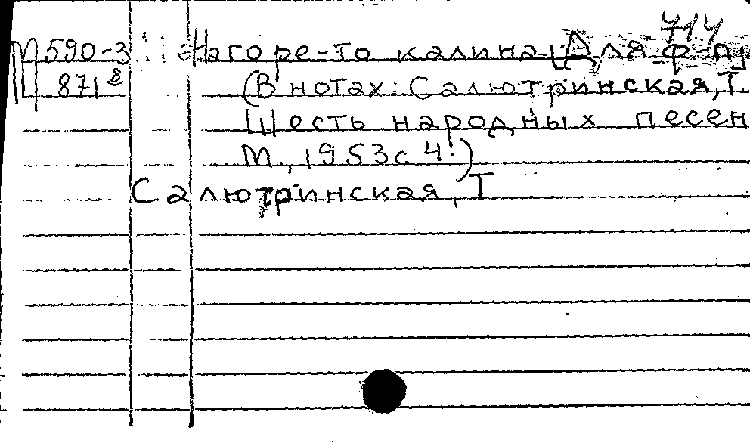 714
М590-3 На горе-то калина [Для ф-п.
Ц 871 (В нотах: Салютринская, Т.
Шесть народных песен
М., 1953 с 4.)
Салютринская, Т